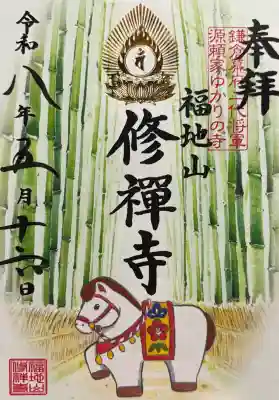 奉拝
鎌倉幕府二代将軍
源頼家ゆかりの寺
福地山
修禅寺
令和八年五月十六日
福地山
修禅寺